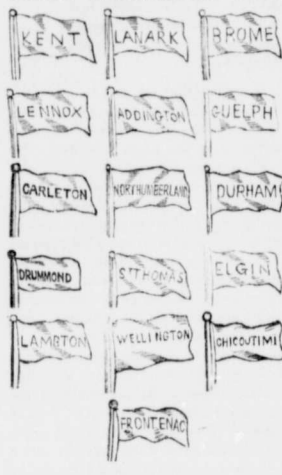 KENT
LANARK
BROME
LENNOX
ADDINGTON
GUELPH
CARLETON
NORTHUMBERLAND
DURHAM
DRUMMOND
ST THOMAS
ELGIN
LAMBTON
WELLINGTON
CHICOUTIMI
FRONTENAC